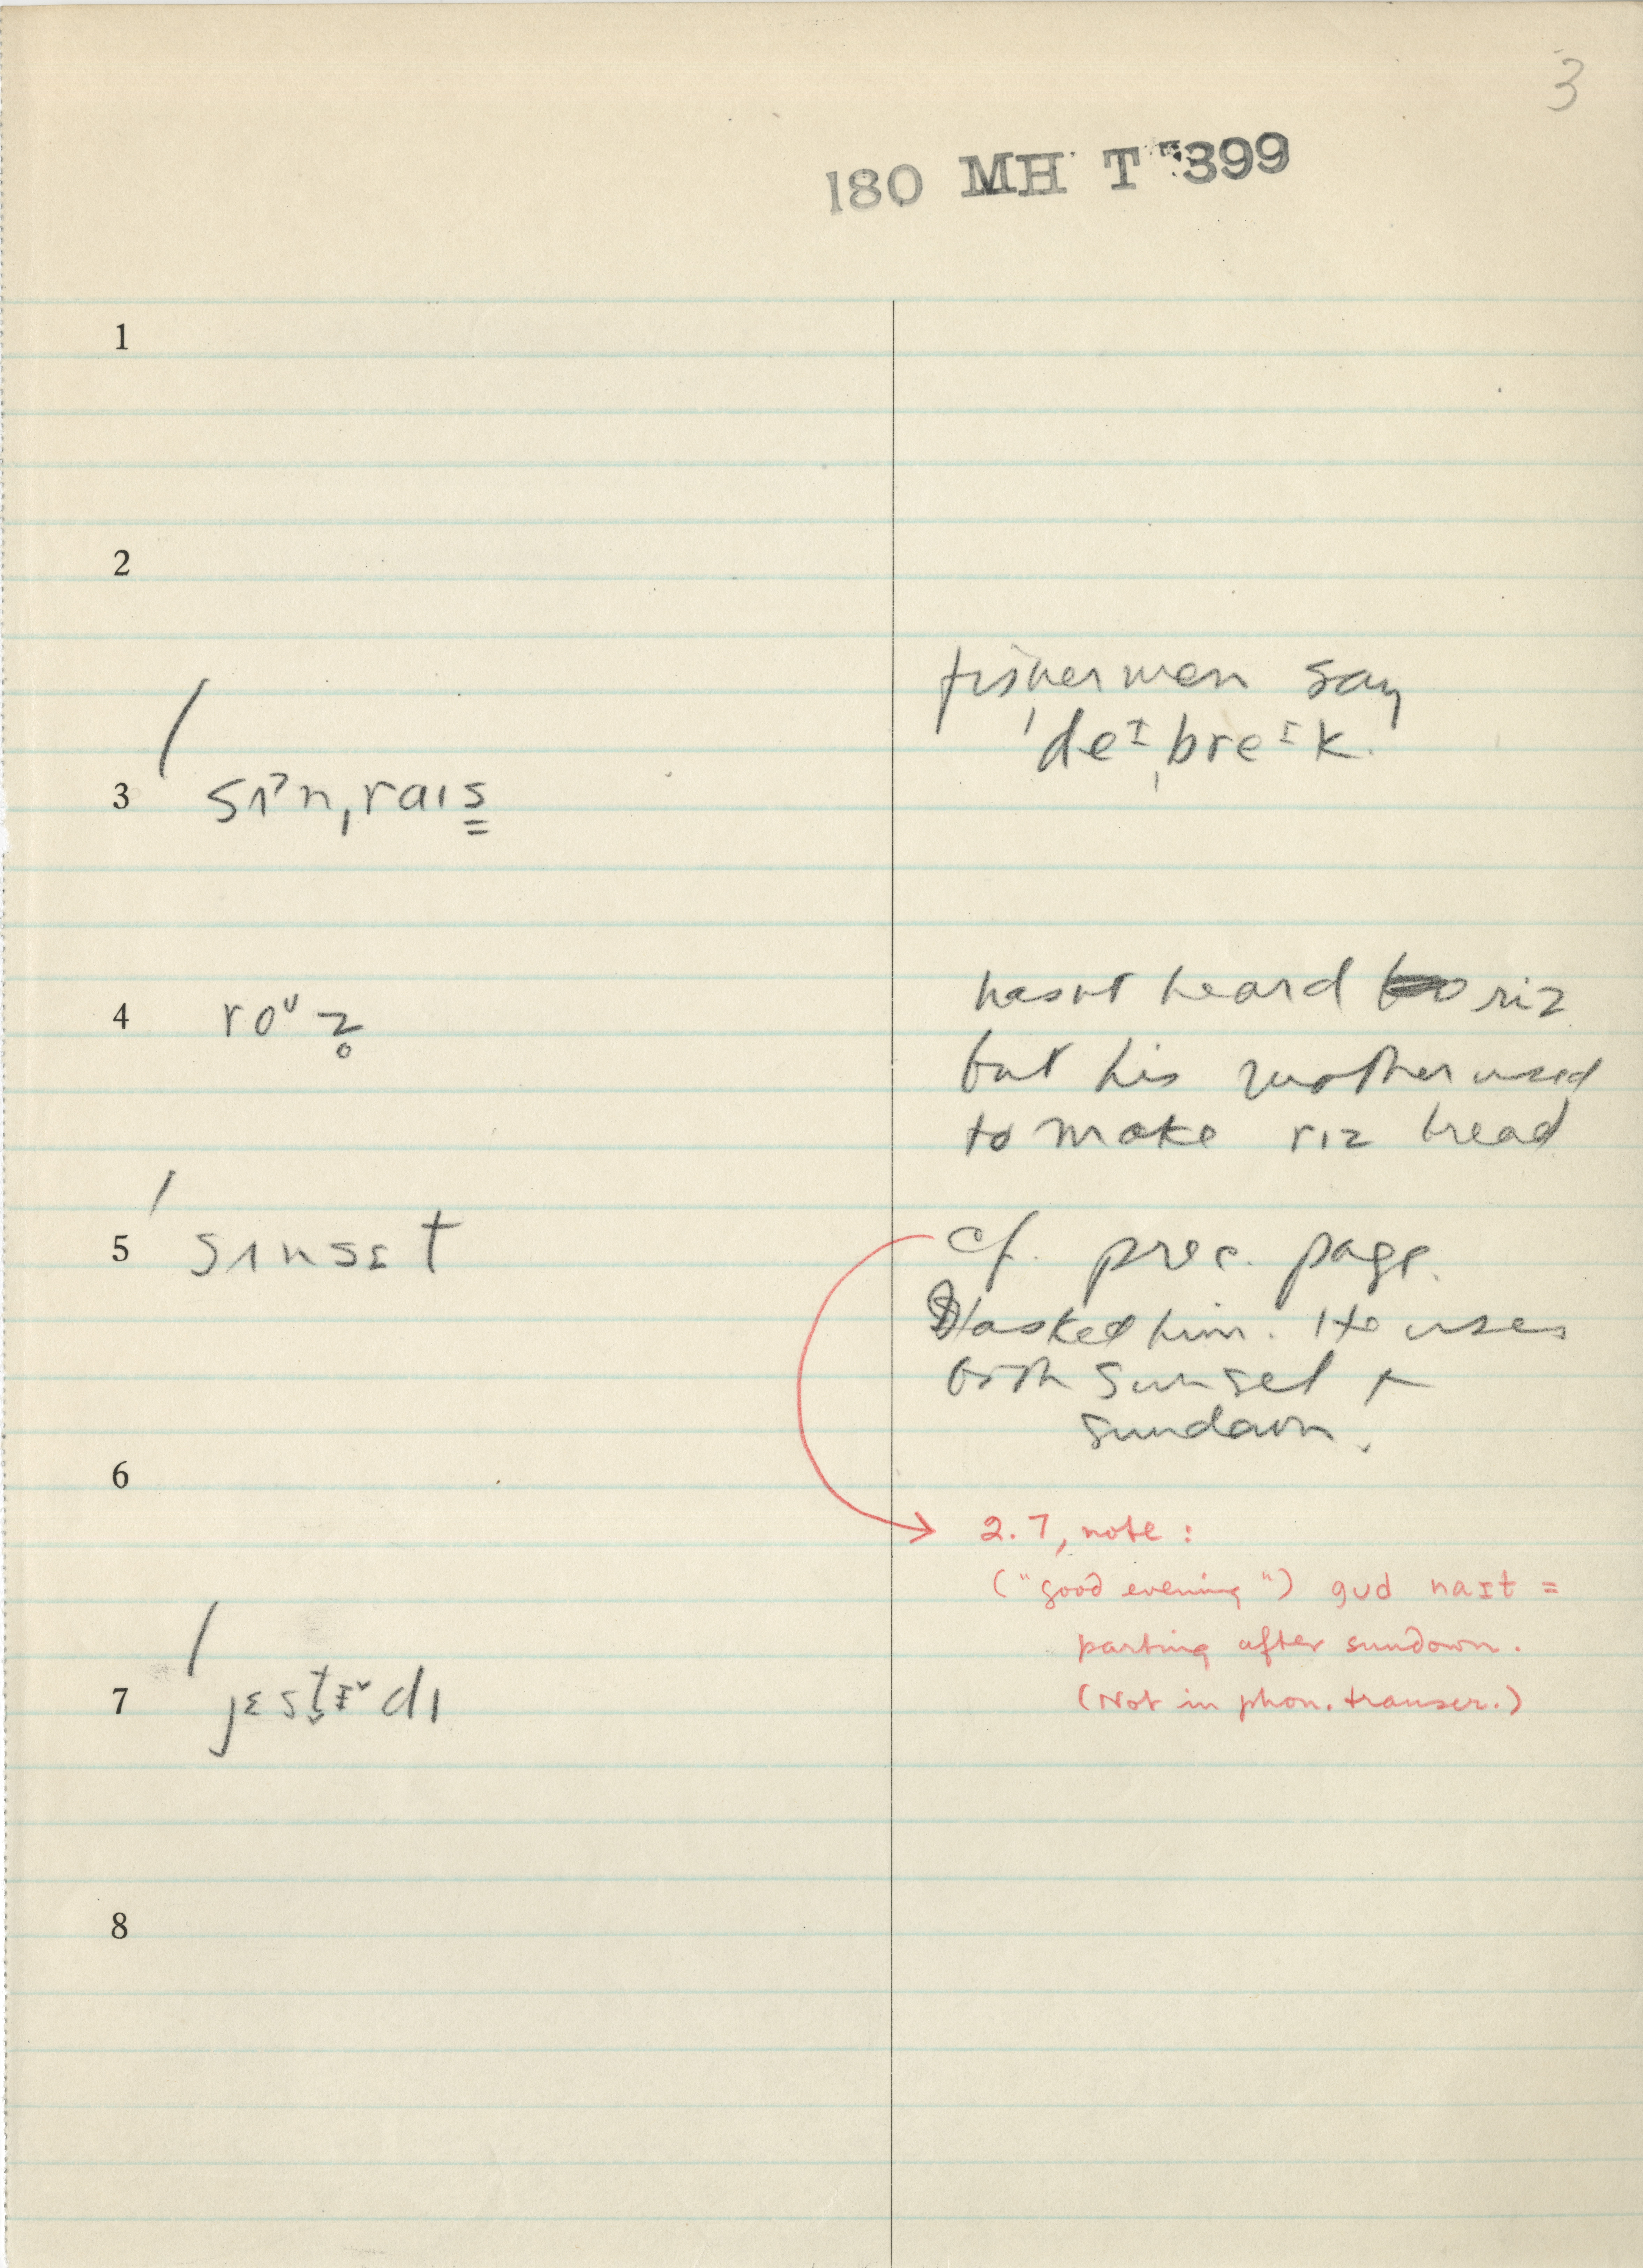 3
180 MH T 399
1
2
fishermen say
ˈdeᶦˌbreᶦk.
3 ˈsɪˀnˌraɪs̳
4 roᵘz̥
hasnt heard riz
but his mother used
to make rɪz bread
5 ˈsʌnsɛt
cf. prec. page.
I asked him. He uses
both sunset +
sundown.
6
2.7, note:
("good evening") gud naɪt =
parting after sundown.
(Not in phon. transcr.)
7
8